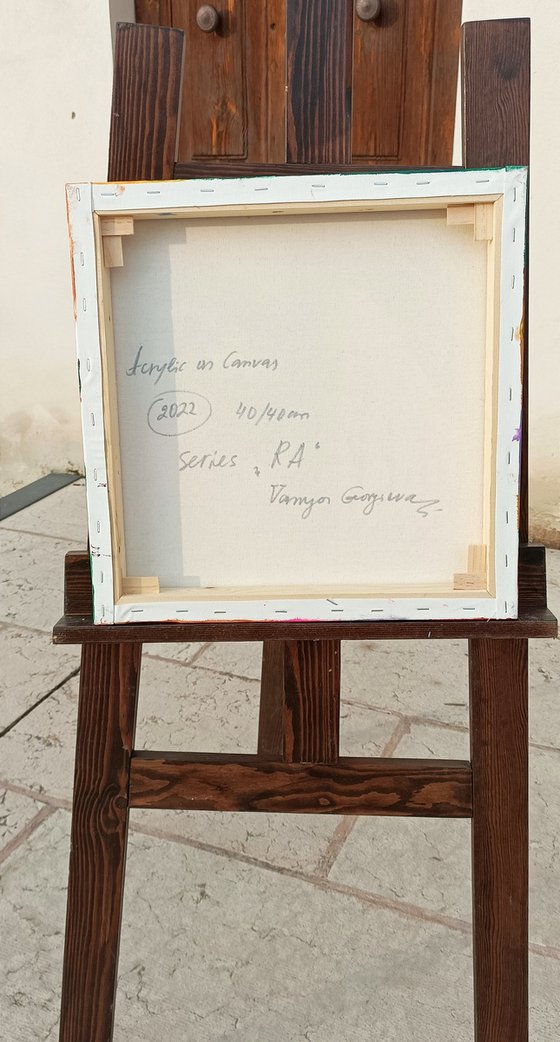 Acrylic on Canvas
2022 40/40cm
series „RA“
Vanya Georgieva